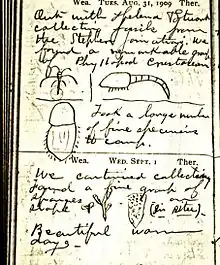 Wea. TUES. AUG. 31, 1909 Ther.
Out with Helena & Stuart
collecting fossils from
the Stephen formation, we
found a remarkable group
Phyllopod Crustaceans
Took a large number
of fine specimens
to camp.
Wea. WED. SEPT. 1 Ther.
We continued collecting
found a fine group of
Sponges on
slope (in situ).
Beautiful warm
days -